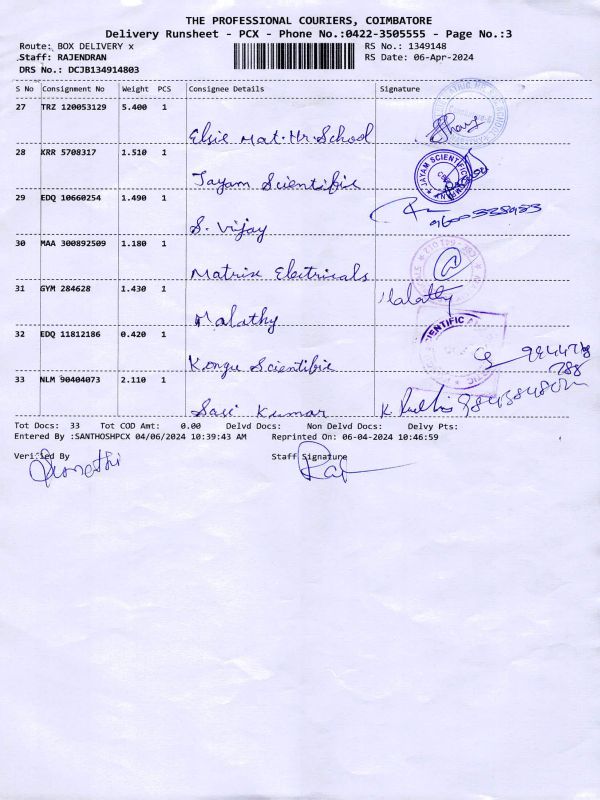 THE PROFESSIONAL COURIERS, COIMBATORE
Delivery Runsheet - PCX - Phone No.:0422-3505555 - Page No.:3
Route: BOX DELIVERY x RS No.: 1349148
Staff: RAJENDRAN RS Date: 06-Apr-2024
DRS No.: DCJB134914803
S No Consignment No Weight PCS Consignee Details Signature
27 TRZ 120053129 5.400 1
Elsie Mat. Hr. School
28 KRR 5708317 1.510 1
Jayam Scientific JAYAM SCIENTIFIC
29 EDQ 10660254 1.490 1
S. Vijay
30 MAA 300892509 1.180 1
Matrix Electricals
31 GYM 284628 1.430 1 Malathy
Malathy
32 EDQ 11812186 0.420 1
Kongu Scientific
33 NLM 90404073 2.110 1
Sasi Kumar
Tot Docs: 33 Tot COD Amt: 0.00 Delvd Docs: Non Delvd Docs: Delvy Pts:
Entered By :SANTHOSHPCX 04/06/2024 10:39:43 AM Reprinted On: 06-04-2024 10:46:59
Verified By Staff Signature
Raj